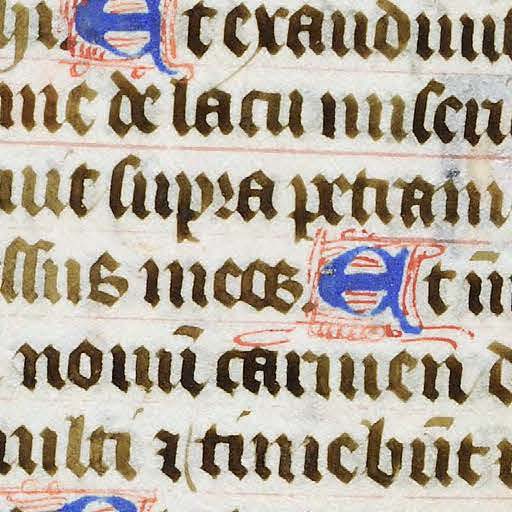 hi Et exaudiuit
me de lacu miserie
aut supra petram
ssus meos Et im
nouū carmen d
multi ⁊ timebūt